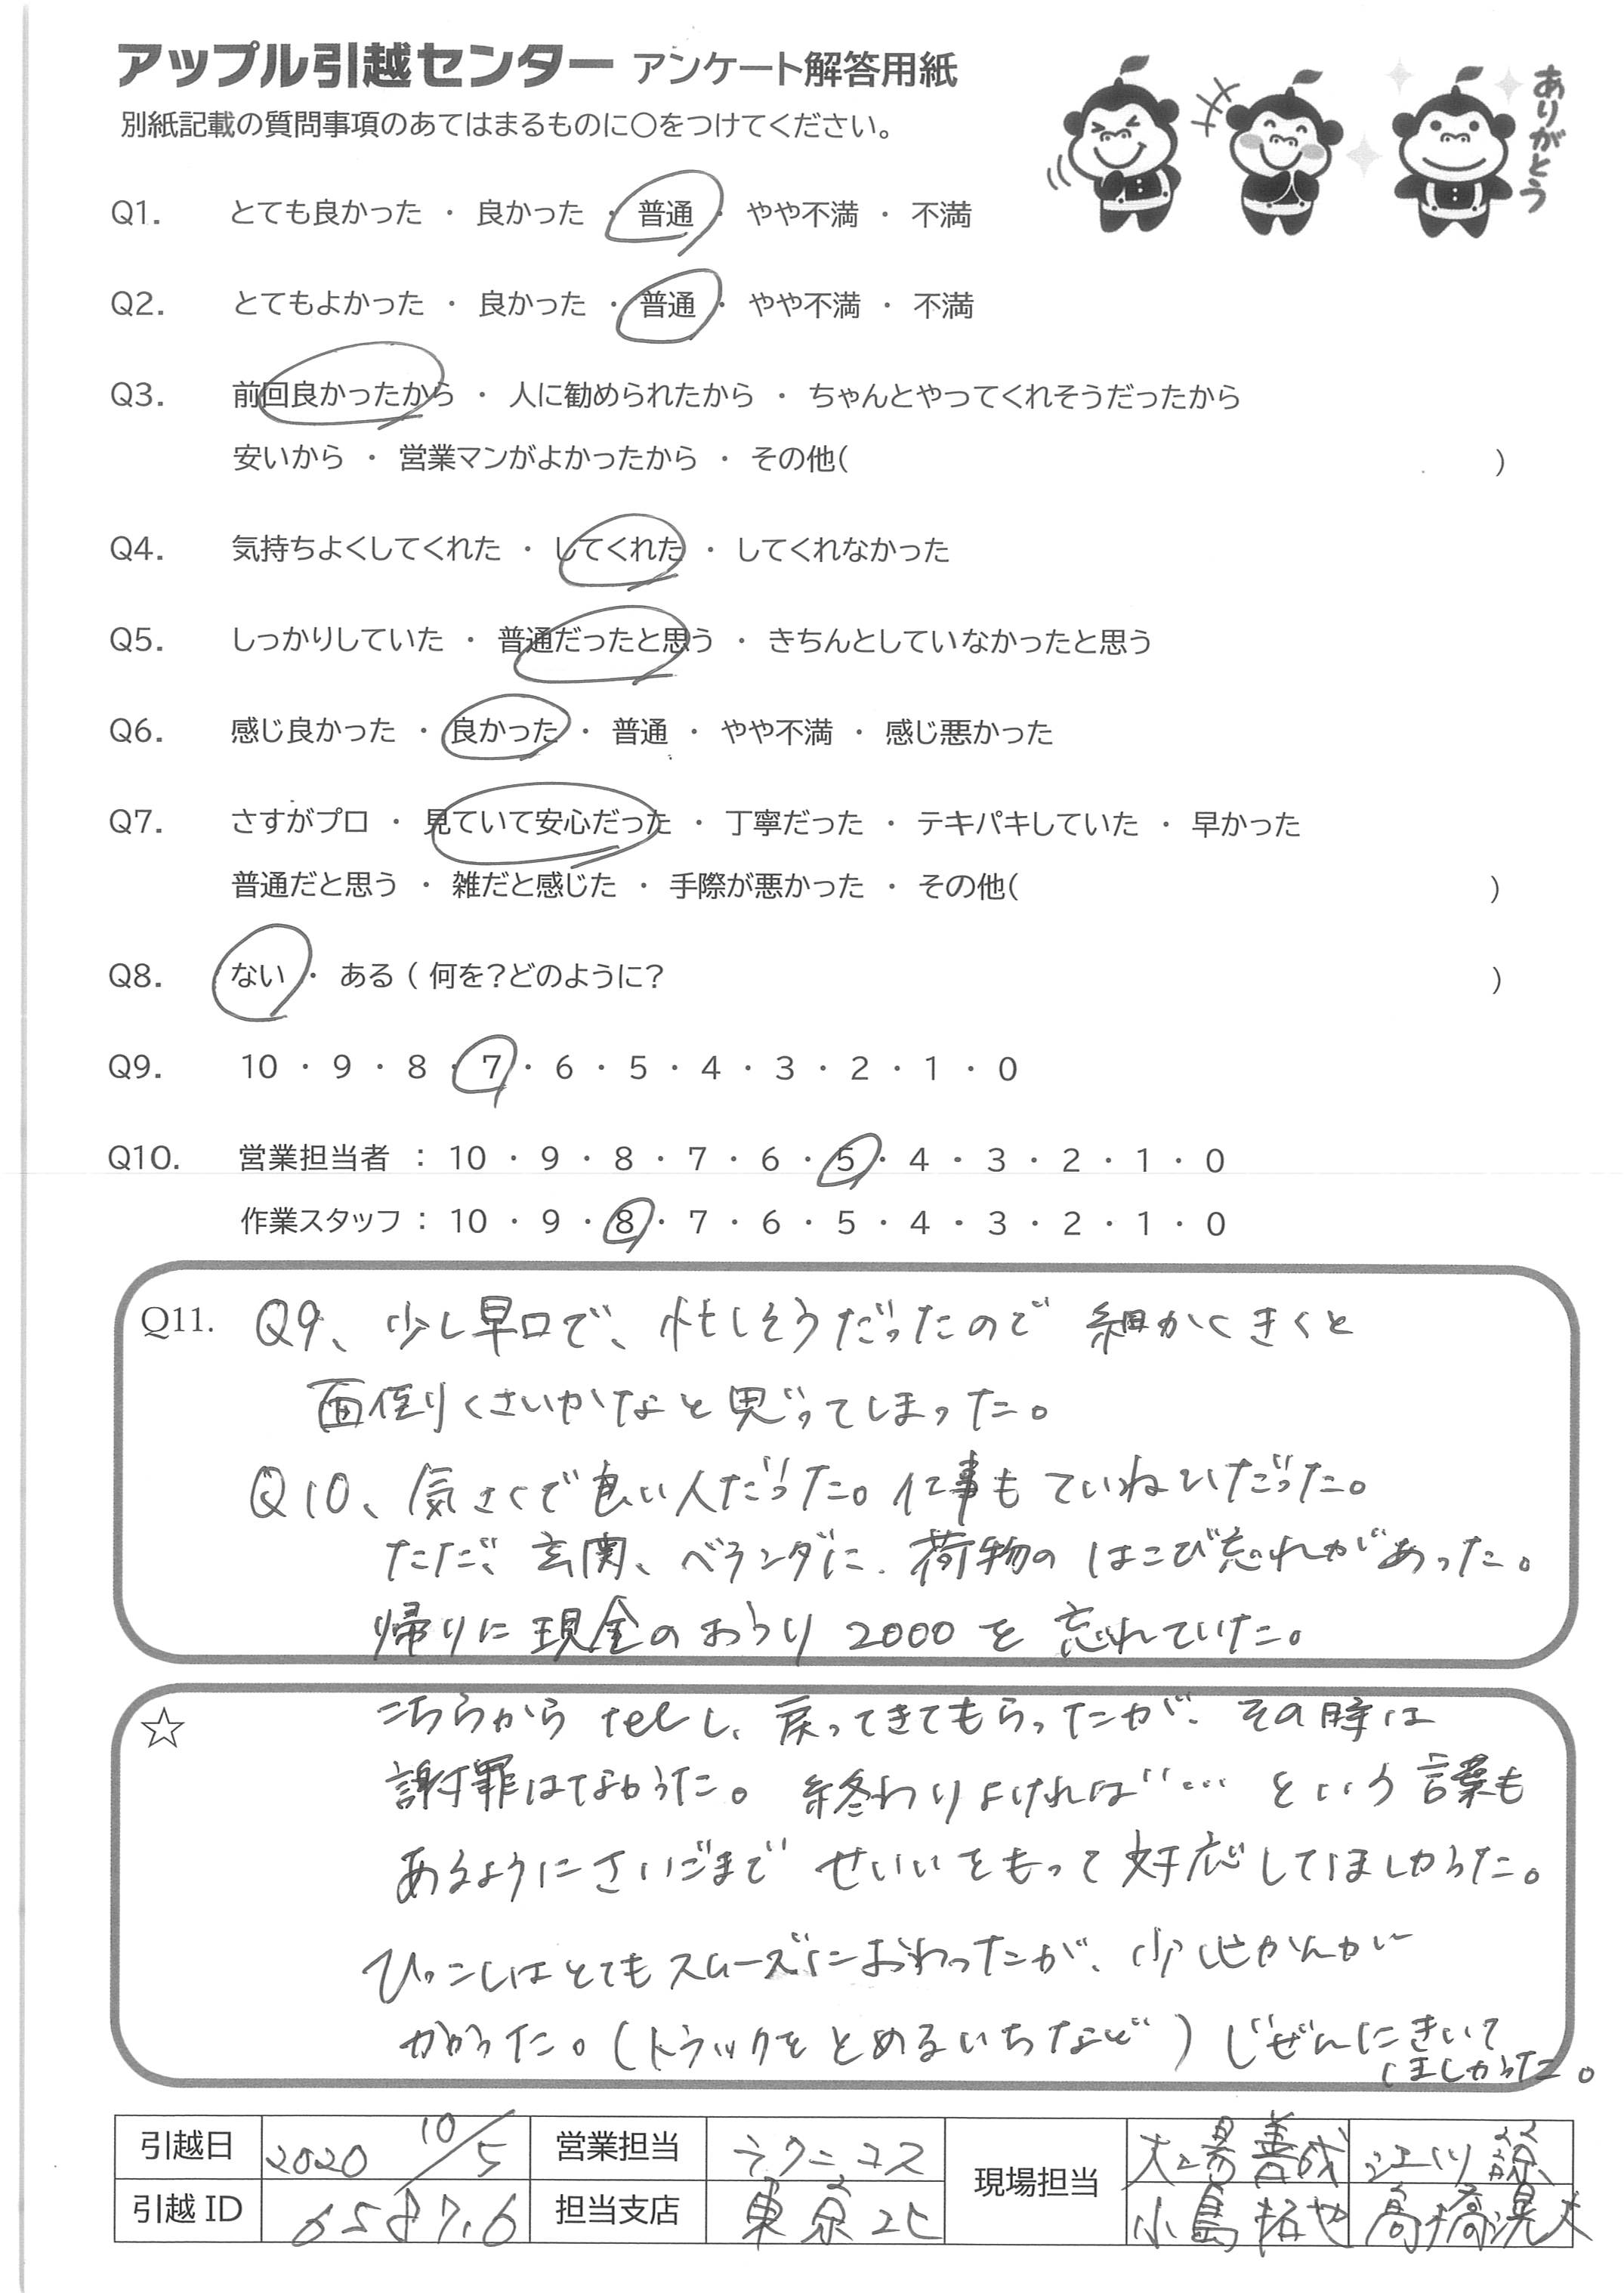 アップル引越センター アンケート解答用紙
ありがとう
別紙記載の質問事項のあてはまるものに〇をつけてください。
Q1. とても良かった ・ 良かった ・ 普通 ・ やや不満 ・ 不満
Q2. とてもよかった ・ 良かった ・ 普通 ・ やや不満 ・ 不満
Q3. 前回良かったから ・ 人に勧められたから ・ ちゃんとやってくれそうだったから
安いから ・ 営業マンがよかったから ・ その他( )
Q4. 気持ちよくしてくれた ・ してくれた ・ してくれなかった
Q5. しっかりしていた ・ 普通だったと思う ・ きちんとしていなかったと思う
Q6. 感じ良かった ・ 良かった ・ 普通 ・ やや不満 ・ 感じ悪かった
Q7. さすがプロ ・ 見ていて安心だった ・ 丁寧だった ・ テキパキしていた ・ 早かった
普通だと思う ・ 雑だと感じた ・ 手際が悪かった ・ その他( )
Q8. ない ・ ある ( 何を?どのように? )
Q9. 10 ・ 9 ・ 8 ・ 7 ・ 6 ・ 5 ・ 4 ・ 3 ・ 2 ・ 1 ・ 0
Q10. 営業担当者 : 10 ・ 9 ・ 8 ・ 7 ・ 6 ・ 5 ・ 4 ・ 3 ・ 2 ・ 1 ・ 0
作業スタッフ : 10 ・ 9 ・ 8 ・ 7 ・ 6 ・ 5 ・ 4 ・ 3 ・ 2 ・ 1 ・ 0
Q11. Q9、少し早口で、忙しそうだったので 細かくきくと
面倒くさいかなと思ってしまった。
Q10、気さくで良い人だった。仕事もていねいだった。
ただ、玄関、ベランダに、荷物のはこび忘れがあった。
帰りに現金のおつり2000を忘れていた。
☆ こちらからtelし、戻ってきてもらったが、その時は
謝罪はなかった。終わりよければ…という言葉も
あるようにさいごまでせいいをもって対応してほしかった。
ひっこしはとてもスムーズにおわったが、少しじかんが
かかった。(トラックをとめるいちなど)じぜんにきいて
ほしかった。
引越日 2020 10/5 営業担当 ラクニコス 現場担当 大場善成 江川諒
引越ID 658716 担当支店 東京北 小島拓也 高橋滉大